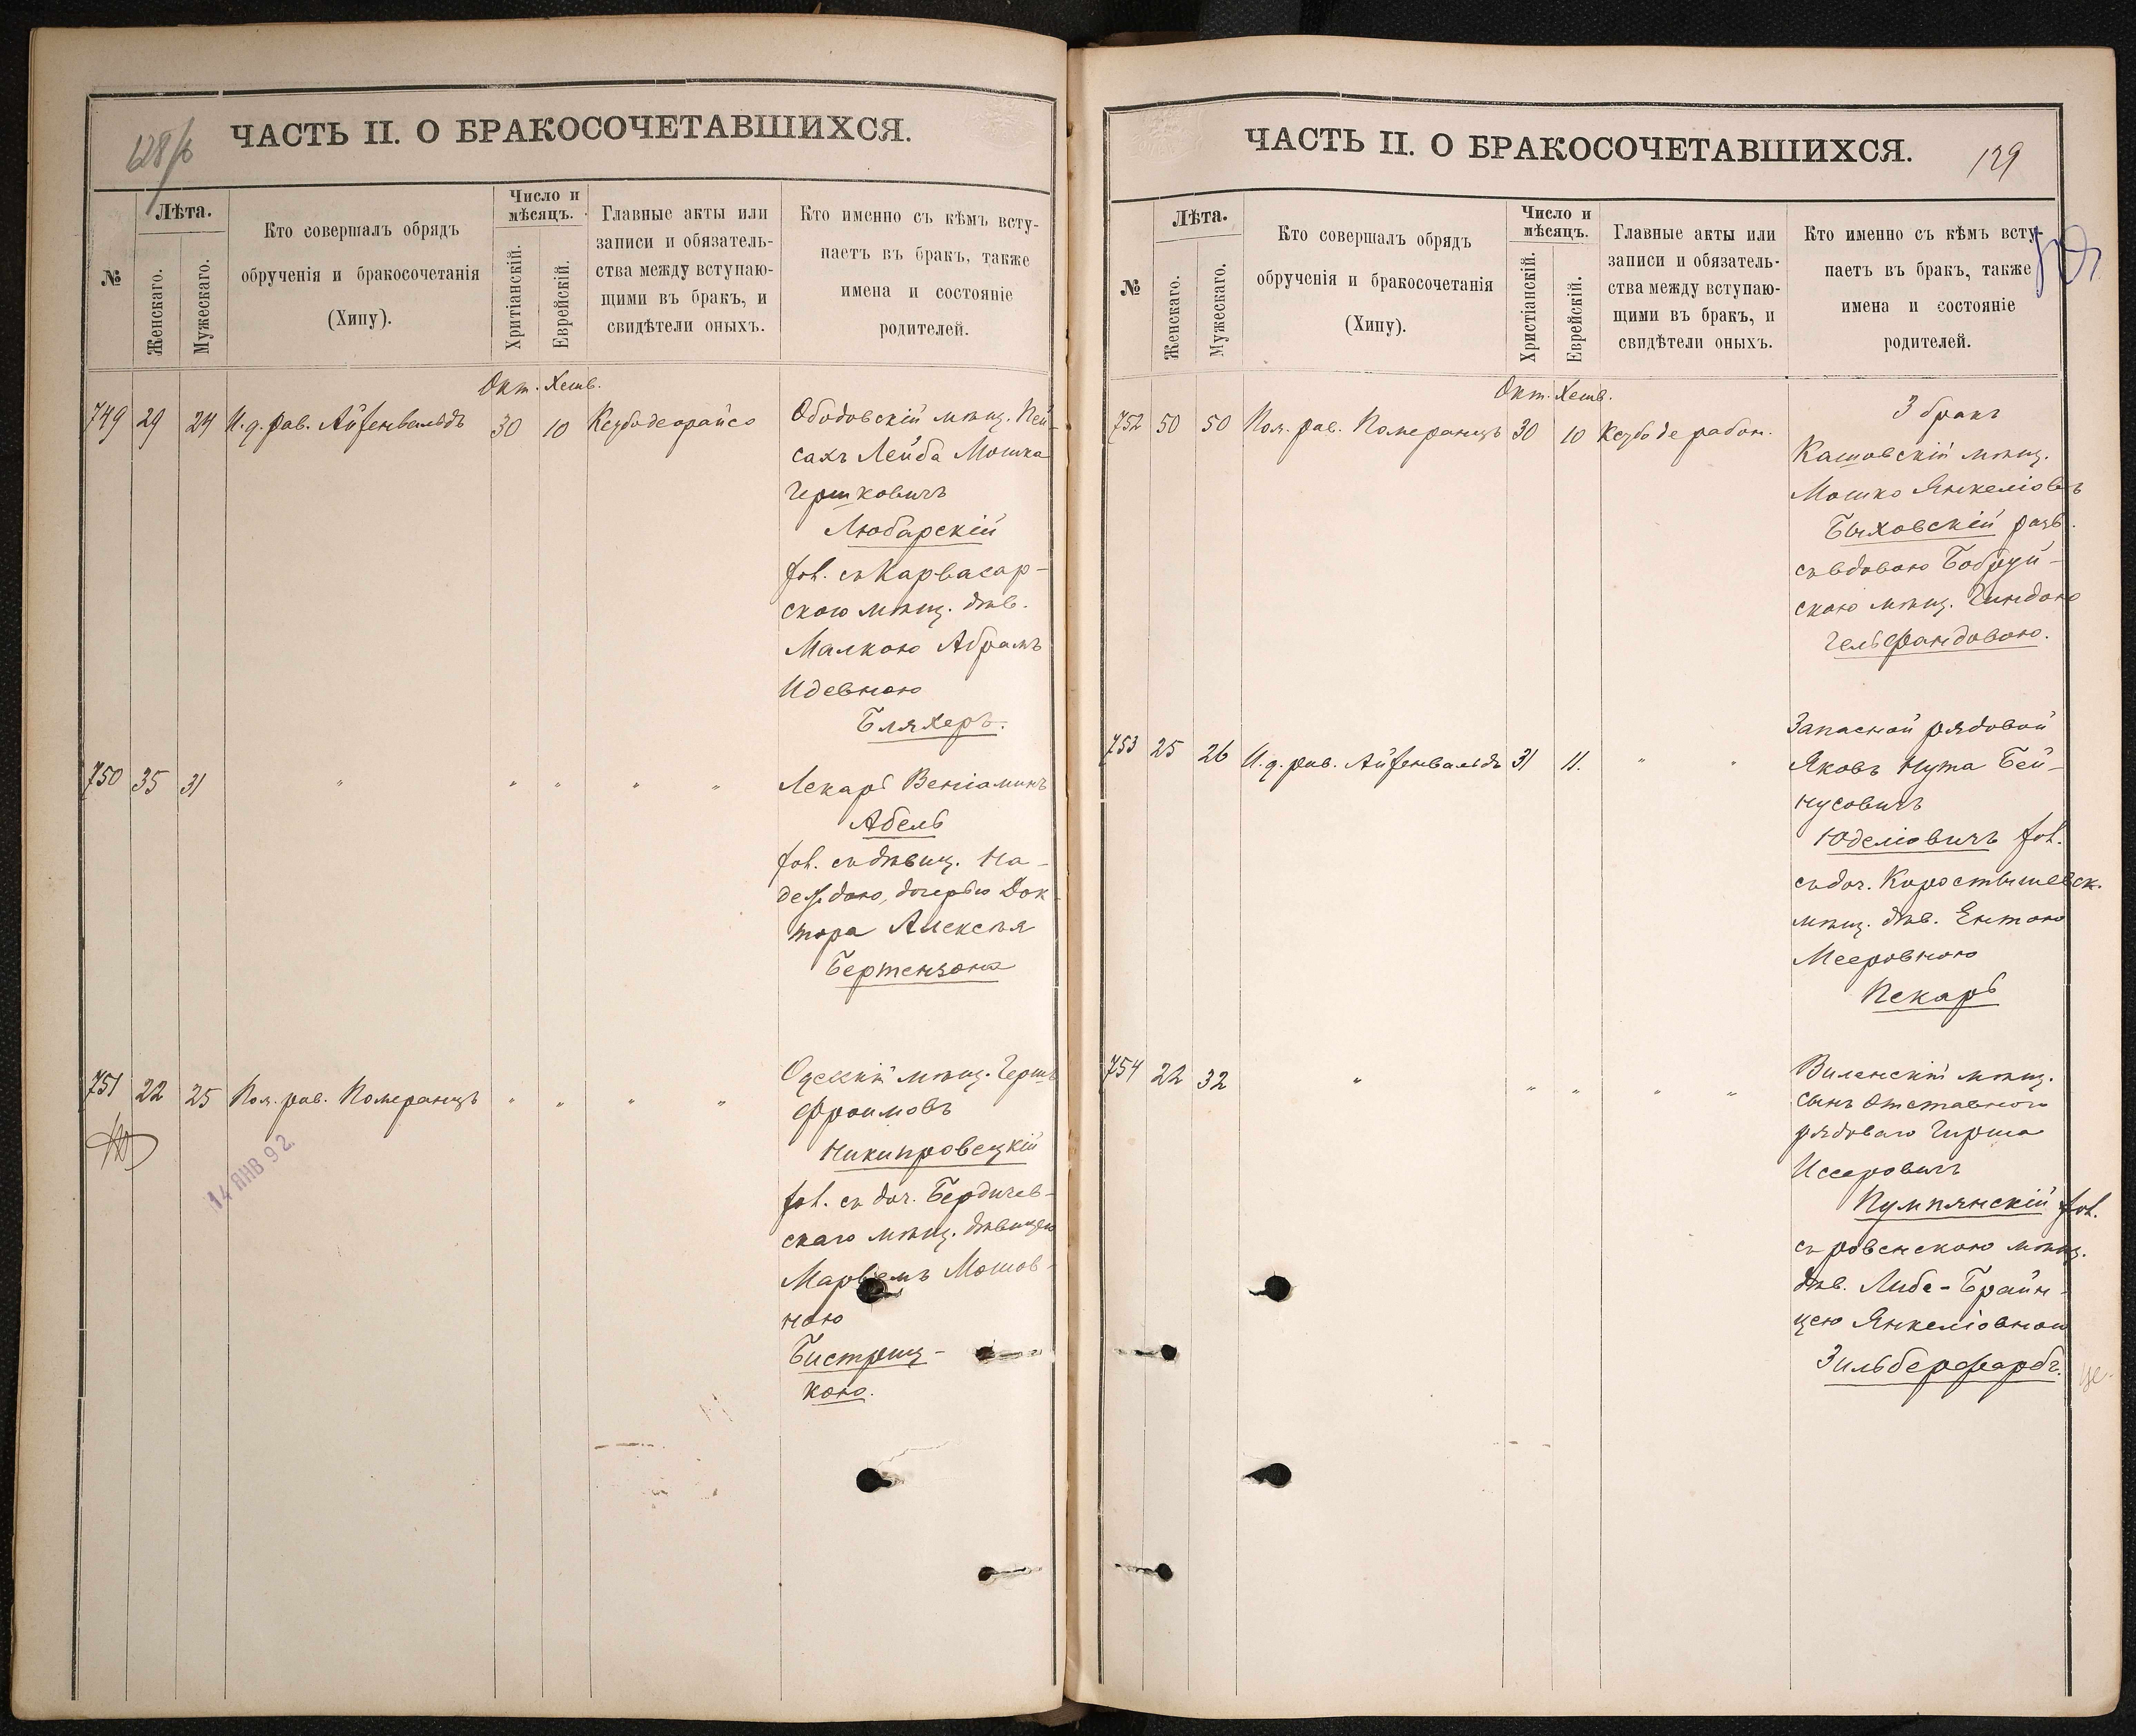 128/б
ЧАСТЬ II. О БРАКОСОЧЕТАВШИХСЯ.
№
Лѣта.
Женскаго.
Мужескаго.
Кто совершалъ обрядъ
обрученія и бракосочетанія
(Хипу).
Число и
мѣсяцъ.
Хритіанскій.
Еврейскій.
Главные акты или
записи и обязатель-
ства между вступаю-
щими въ бракъ, и
свидѣтели оныхъ.
Кто именно съ кѣмъ всту-
паетъ въ бракъ, также
имена и состояніе
родителей.
Окт. Хешв.
749 29 24 И.д. рав. Айзенвальдъ 30 10 Ксубодеорайсо Ободовскій мѣщ. Пей-
сахъ Лейба Мошка
Гершковичъ
Любарскій
хол. съ Карвасар-
скою мѣщ. дѣв.
Малкою Абрамъ
Идевною
Бляхеръ.
750 35 31 " " " " " Лекарь Веніаминъ
Абель
хол. съ дѣвиц. На-
деждою, дочерью Док-
тора Алексѣя
Бертензона
751 22 25 Пом. рав. Померанцъ " " " " Одесскій мѣщ. Гершъ
Фроимовъ
Никипровецкій
хол. съ доч. Бердичев-
скаго мѣщ. дѣвицею
Маріемъ Мошов-
ною
Бистриц-
кою.
14 ЯНВ 92
129
ЧАСТЬ II. О БРАКОСОЧЕТАВШИХСЯ.
№
Лѣта.
Женскаго.
Мужескаго.
Кто совершалъ обрядъ
обрученія и бракосочетанія
(Хипу).
Число и
мѣсяцъ.
Христіанскій.
Еврейскій.
Главные акты или
записи и обязатель-
ства между вступаю-
щими въ бракъ, и
свидѣтели оныхъ.
Кто именно съ кѣмъ всту-
паетъ въ бракъ, также
имена и состояніе
родителей.
Окт. Хешв.
3 бракъ
752 50 50 Пом. рав. Померанцъ 30 10 Ксубо де рабон. Кашовскій мѣщ.
Мошко Янкеліовъ
Быховскій разв.
съ вдовою Бобруй-
скою мѣщ. Гиндою
Гельфандовою.
Запасной рядовой
753 25 26 И.д. рав. Айзенвальдъ 31 11. " " Яковъ Нута Бей-
нусовичъ
Юделіовичъ хол.
съ доч. Коростышевск.
мѣщ. дѣв. Ентою
Мееровною
Пекарь
754 22 32 " " " " " Виленскій мѣщ.
сынъ отставного
рядоваго Гирша
Иссеровичъ
Пумпянскій хол.
съ ровенскою мѣщ.
дѣв. Либе-Брайн-
цею Янкеліовною
Зильберфарбъ.